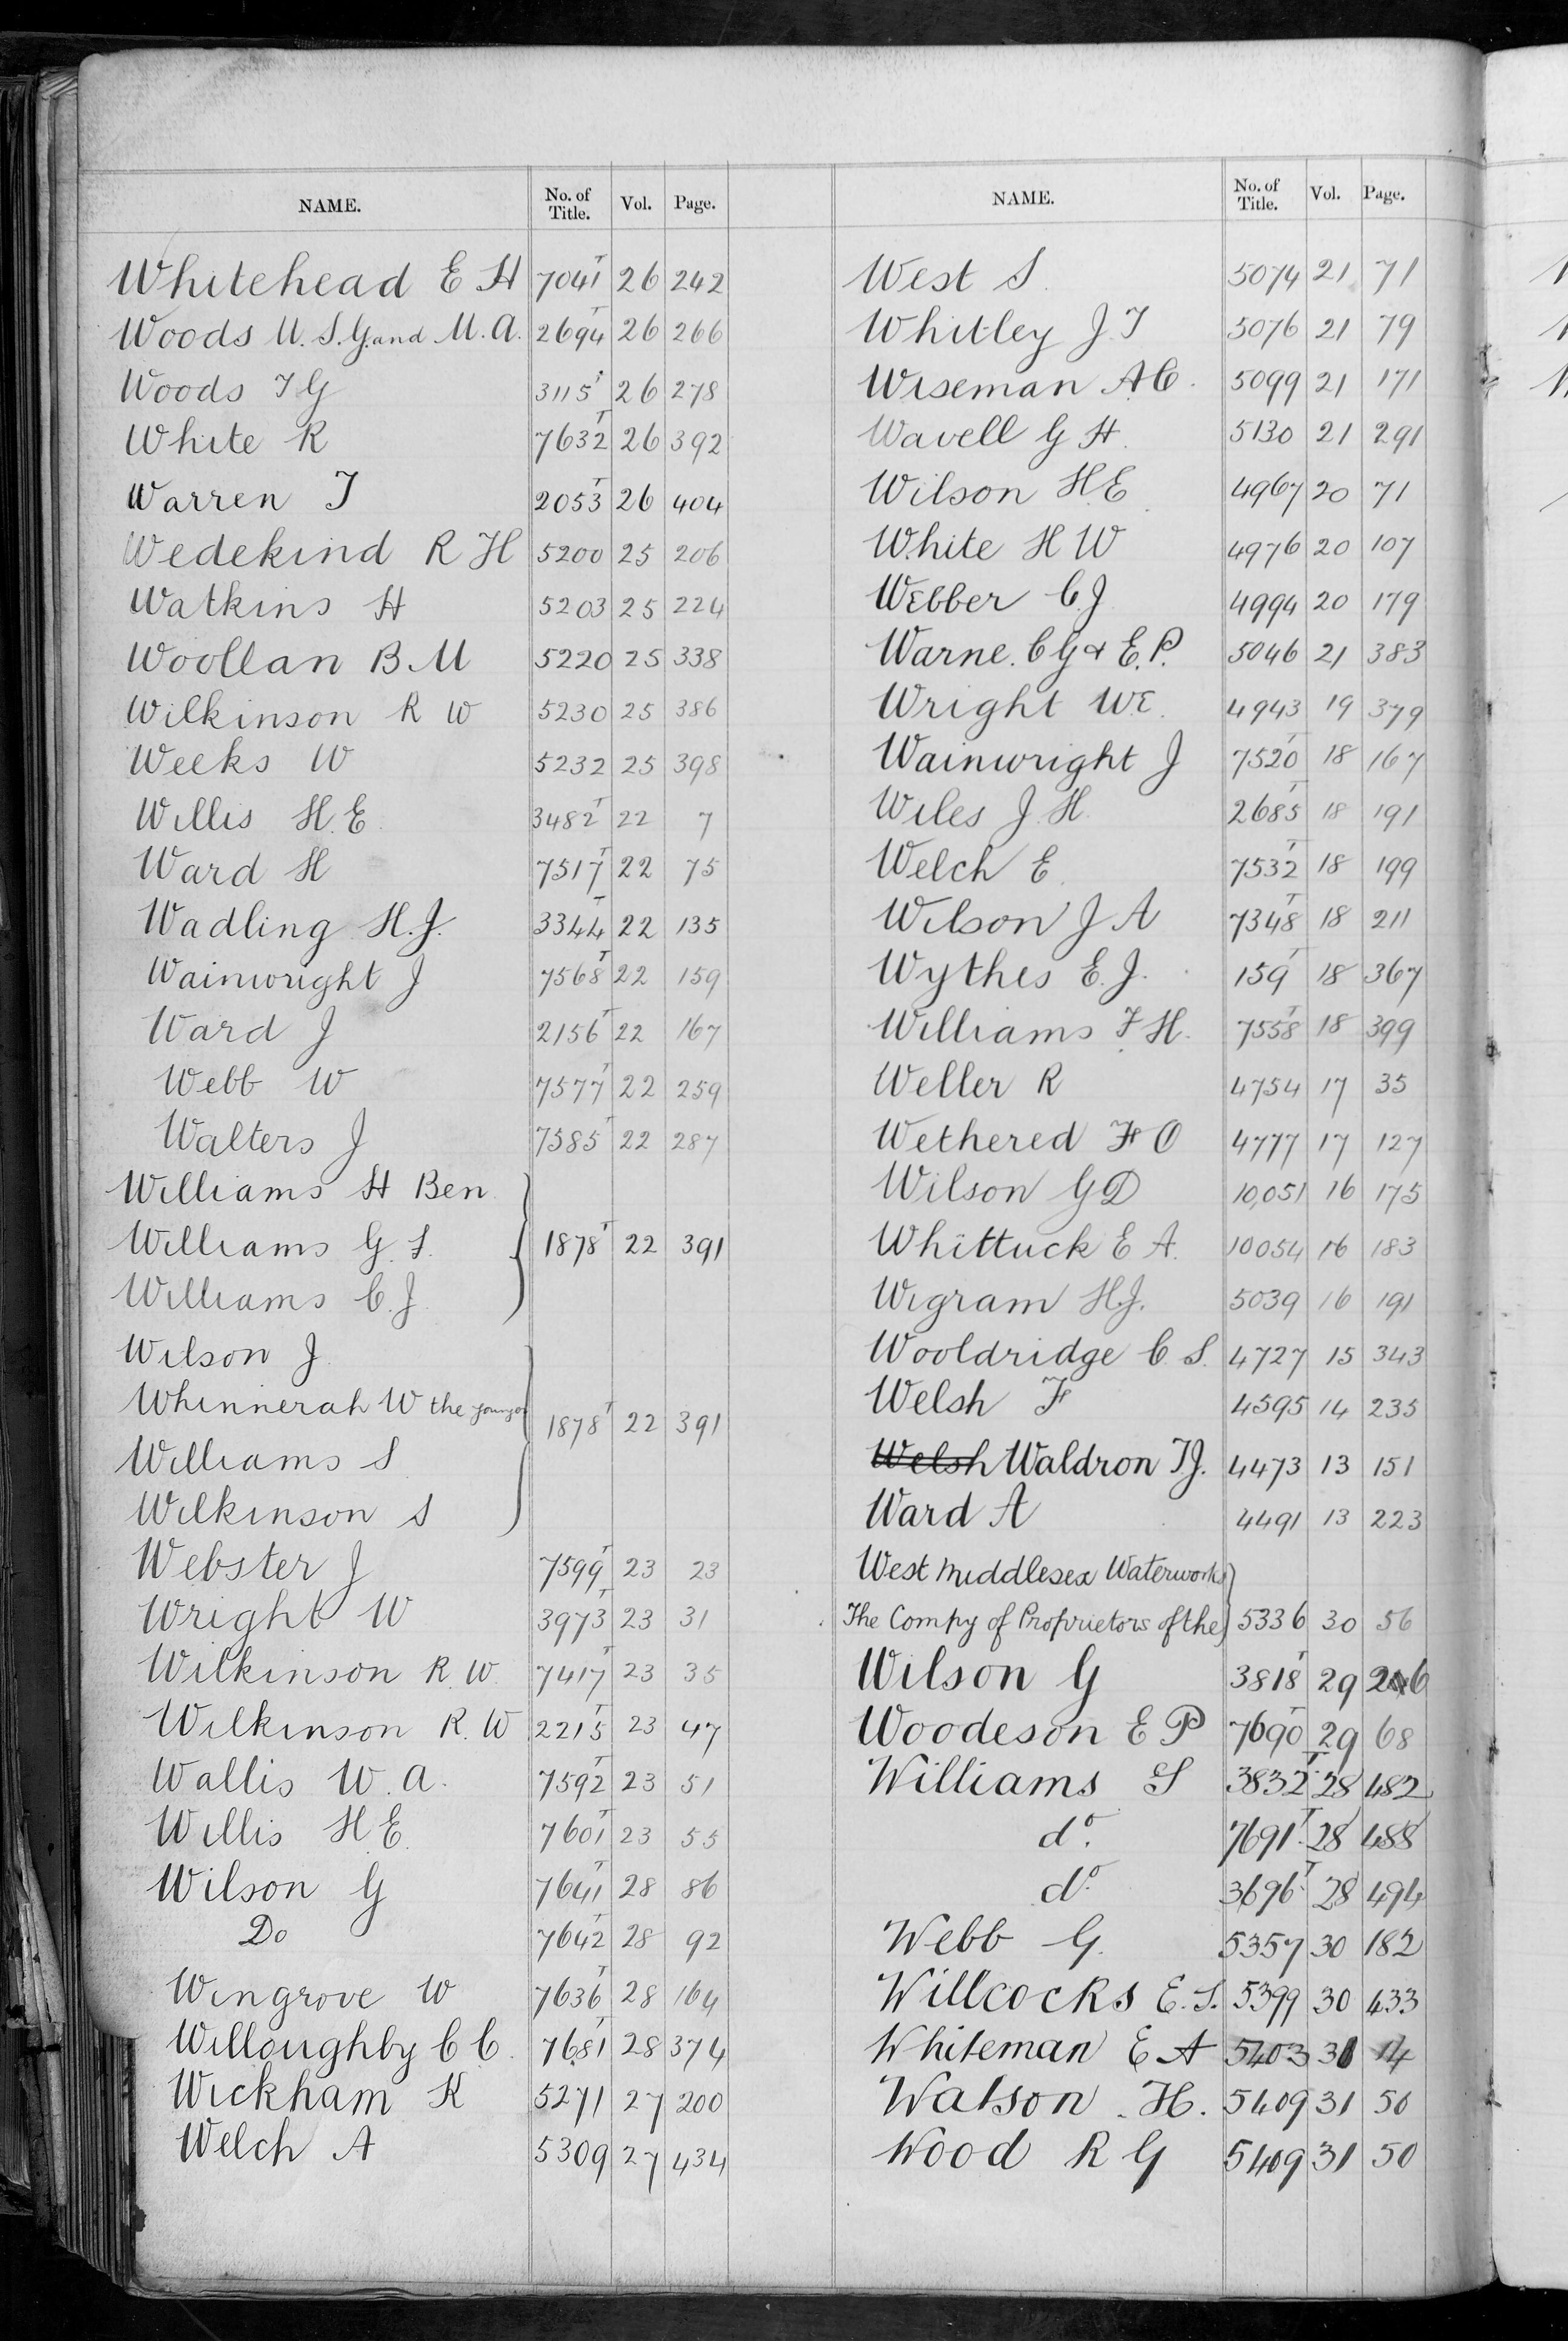 NAME. No. of Title. Vol. Page.
Whitehead E H 7041T 26 242
Woods M. S. G. and M. A. 2694T 26 266
Woods T G 3115T 26 278
White R 7632T 26 392
Warren T 2053T 26 404
Wedekind R H 5200 25 206
Watkins H 5203 25 224
Woollan B M 5220 25 338
Wilkinson R W 5230 25 386
Weeks W 5232 25 398
Willis H. E. 3482T 22 7
Ward H 7517T 22 75
Wadling H. J. 3344T 22 135
Wainwright J 7568T 22 159
Ward J 2156T 22 167
Webb W 7577T 22 259
Walters J 7585T 22 287
Williams H Ben
Williams G S. 1878T 22 391
Williams C. J
Wilson J.
Whinnerah W the younger 1878T 22 391
Williams S
Wilkinson S
Webster J 7599T 23 23
Wright W 3973T 23 31
Wilkinson R. W. 7417T 23 35
Wilkinson R. W 2215T 23 47
Wallis W. A. 7592T 23 51
Willis H E. 7601T 23 55
Wilson G 7641T 28 86
Do 7642T 28 92
Wingrove W 7636T 28 164
Willoughby C C. 7681T 28 374
Wickham K 5271 27 200
Welch A 5309 27 434
NAME. No. of Title. Vol. Page.
West S. 5074 21 71
Whitley J. T 5076 21 79
Wiseman A. C. 5099 21 171
Wavell G H. 5130 21 291
Wilson H. E. 4967 20 71
White H W 4976 20 107
Webber C. J 4994 20 179
Warne. C G & E. P. 5046 21 383
Wright W. E. 4943 19 379
Wainwright J 7520T 18 167
Wiles J. H. 2685T 18 191
Welch E. 7532T 18 199
Wilson J A 7348T 18 211
Wythes E. J. 159T 18 367
Williams F. H. 7558T 18 399
Weller R 4754 17 35
Wethered F O 4777 17 127
Wilson G D 10,051 16 175
Whittuck E A. 10054 16 183
Wigram H. J. 5039 16 191
Wooldridge C. S. 4727 15 343
Welsh F 4595 14 235
Welsh Waldron T J. 4473 13 151
Ward A 4491 13 223
West Middlesex Waterworks
The Compy of Proprietors of the 5336 30 56
Wilson G 3818T 29 206
Woodeson E P 7690T 29 68
Williams S 3832T 28 482
do. 7691T 28 488
do. 3696T 28 494
Webb G. 5357 30 182
Willcocks E. S. 5399 30 433
Whiteman E A 5403 31 14
Watson . H. 5409 31 50
Wood R G 5409 31 50